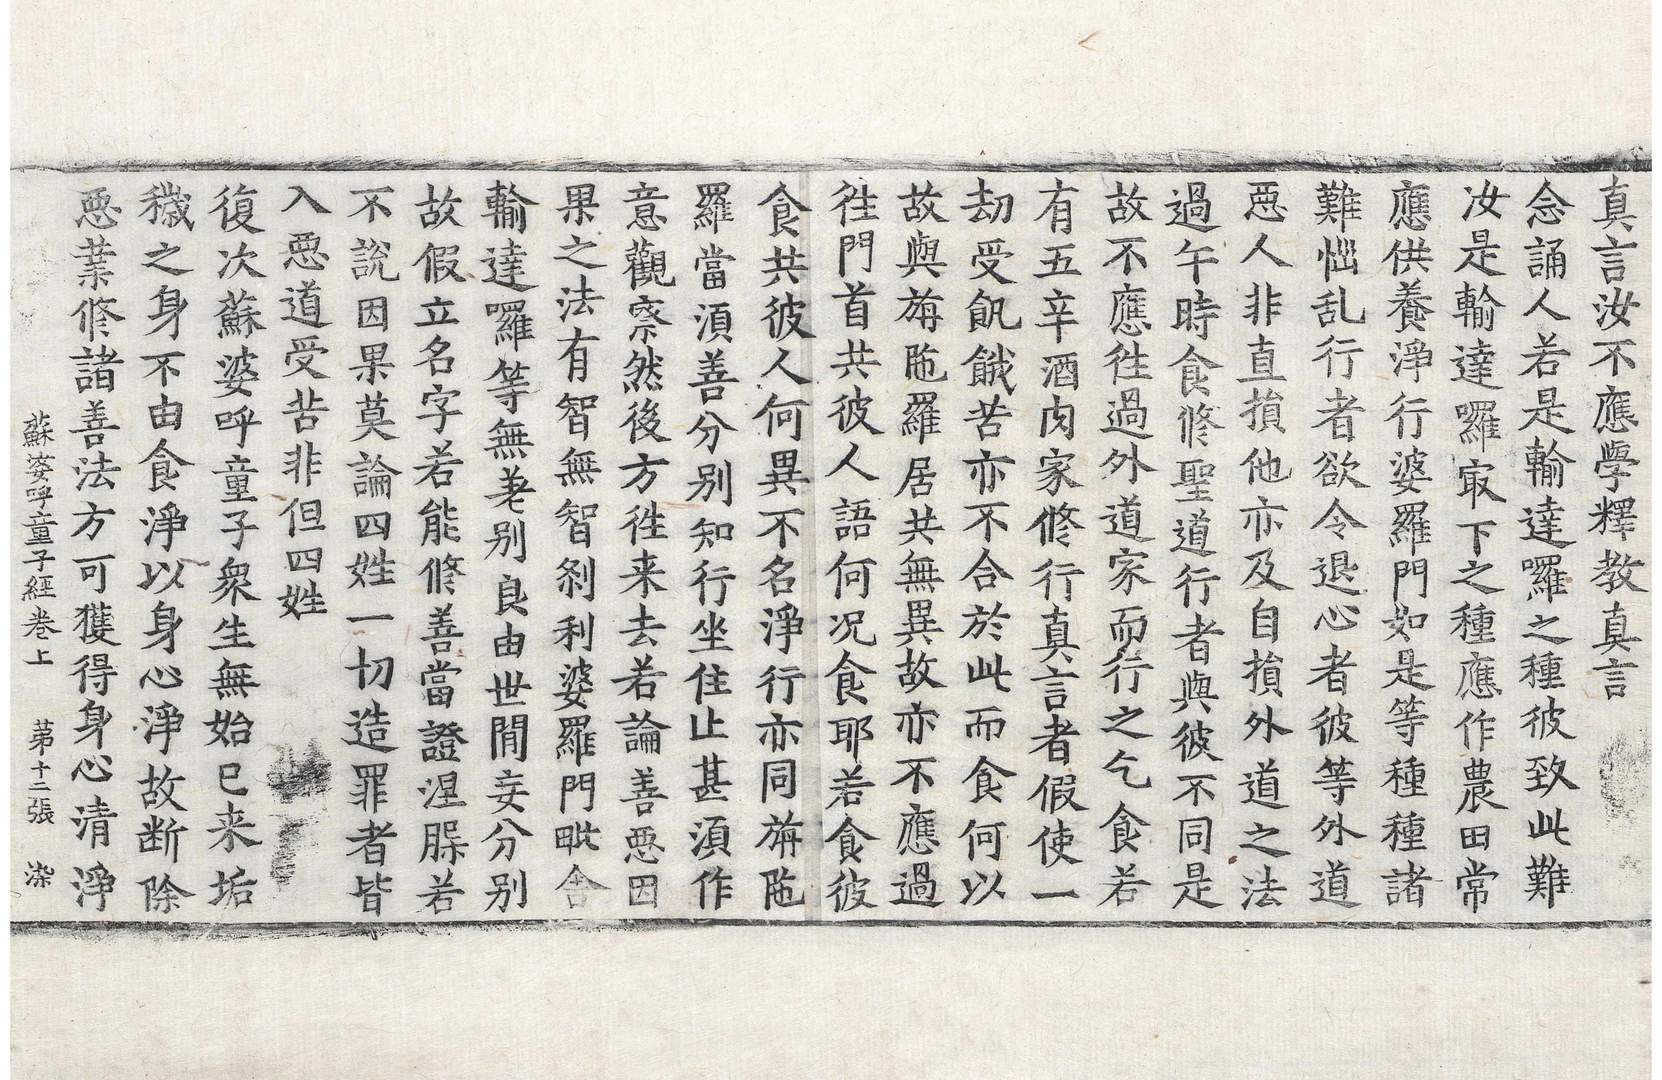 真言汝不應學釋教真言
念誦人若是輸達囉之種彼致此難
汝是輸達囉㝡下之種應作農田常
應供養淨行婆羅門如是等種種諸
難惱乱行者欲令退心者彼等外道
惡人非直損他亦及自損外道之法
過午時食修聖道行者與彼不同是
故不應徃過外道家而行之乞食若
有五辛酒肉家修行真言者假使一
劫受飢餓苦亦不合於此而食何以
故與旃陁羅居共無異故亦不應過
徃門首共彼人語何况食耶若食彼
食共彼人何異不名淨行亦同旃陁
羅當湏善分別知行坐住止甚湏作
意觀察然後方徃来去若論善惡因
果之法有智無智剎利婆羅門毗舍
輸達囉等無差別良由世間妄分別
故假立名字若能修善當證涅槃若
不說因果莫論四姓一切造罪者皆
入惡道受苦非但四姓
復次蘇婆呼童子衆生無始已来垢
穢之身不由食淨以身心淨故断除
惡業修諸善法方可獲得身心清淨
蘇婆呼童子經卷上　第十二張　染